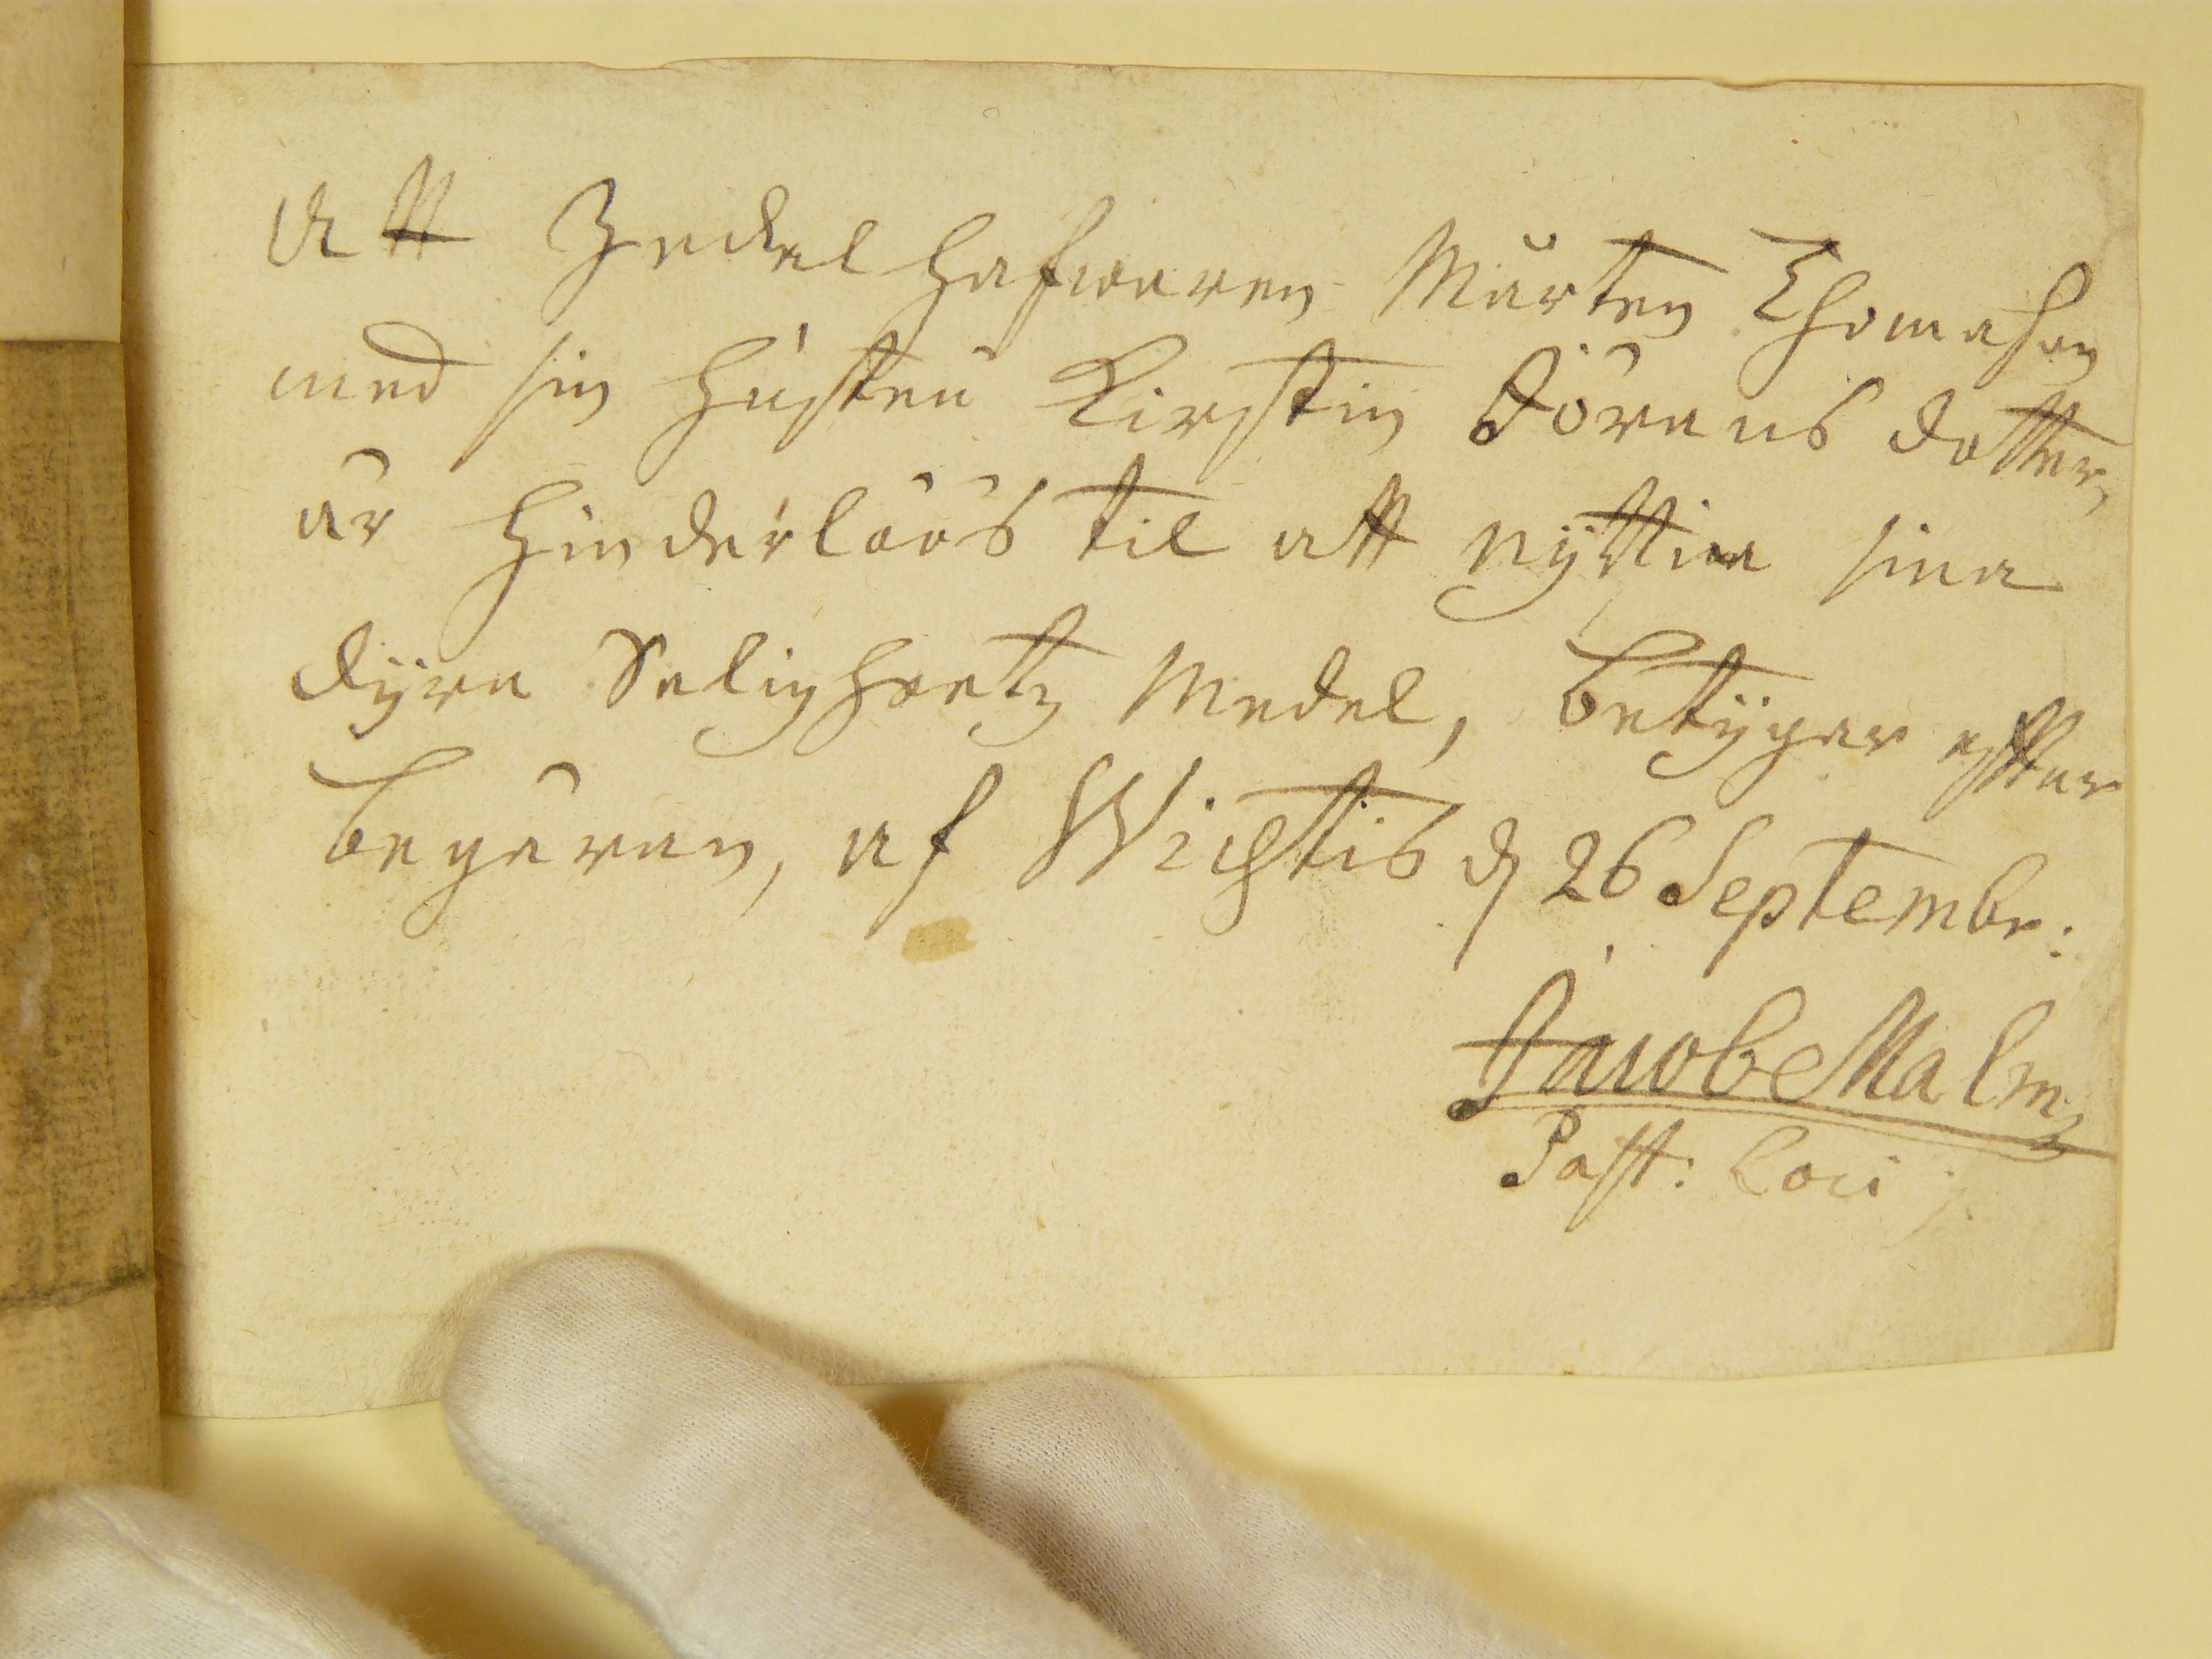 Att Zedelhafwaren Mårten Thomeson
med sin hustru Kirstin Jörens dotter,
är hinderlöös til att nyttia sina
dÿra Saligheetz Medel, betÿgar effter
begäran, af Wichtis d 26 Septembr:
Jacob Malm
Past: Loci